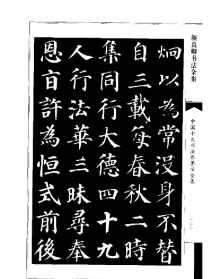 顏真卿书法全集
炯以為常没身不替
自三載每春秋二時
集同行大德四十九
人行法華三昧尋奉
恩旨許為恒式前後